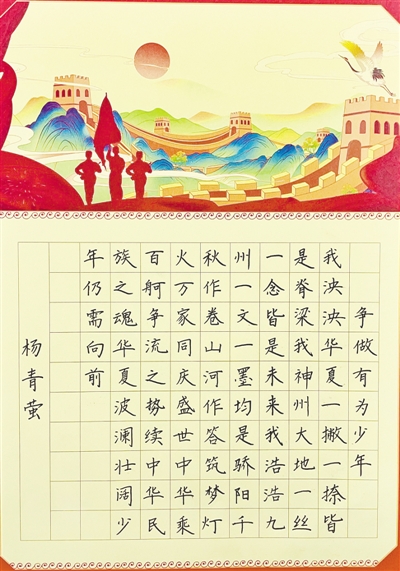 争做有为少年
我泱泱华夏一撇一捺皆
是脊梁我神州大地一丝
一念皆是未来我浩浩九
州一文一墨均是骄阳千
秋作卷山河作答筑梦灯
火万家同庆盛世中华乘
百舸争流之势续中华民
族之魂华夏波澜壮阔少
年仍需向前
杨青萤